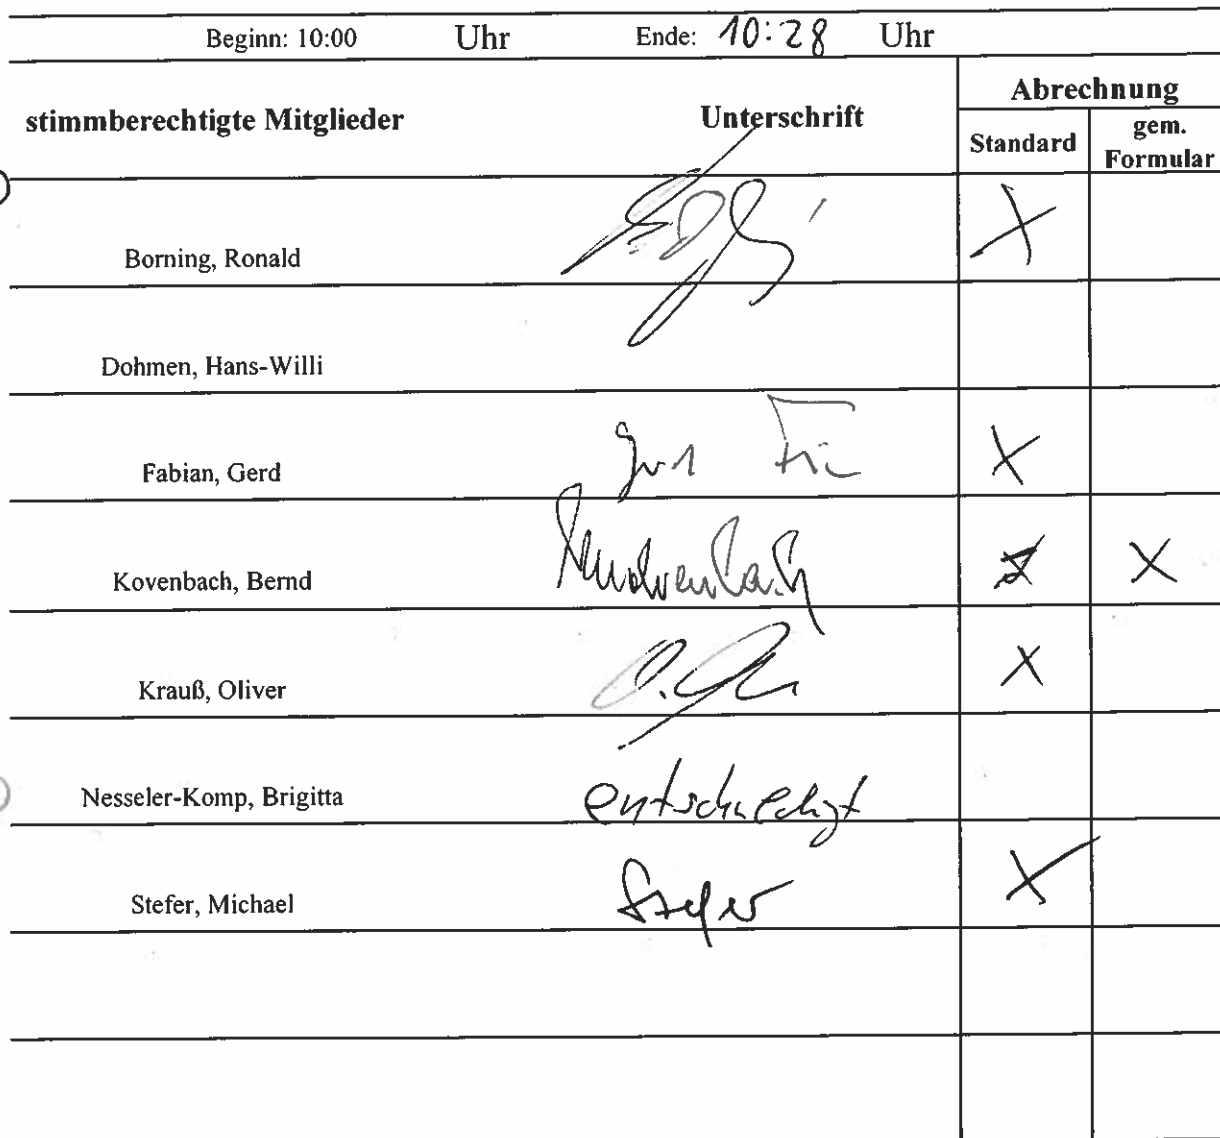 Beginn: 10:00 Uhr Ende: 10:28 Uhr
stimmberechtigte Mitglieder Unterschrift Abrechnung
Standard gem. Formular
Borning, Ronald X
Dohmen, Hans-Willi
Fabian, Gerd X
Kovenbach, Bernd X
Krauß, Oliver X
Nesseler-Komp, Brigitta entschuldigt
Stefer, Michael Stefer X